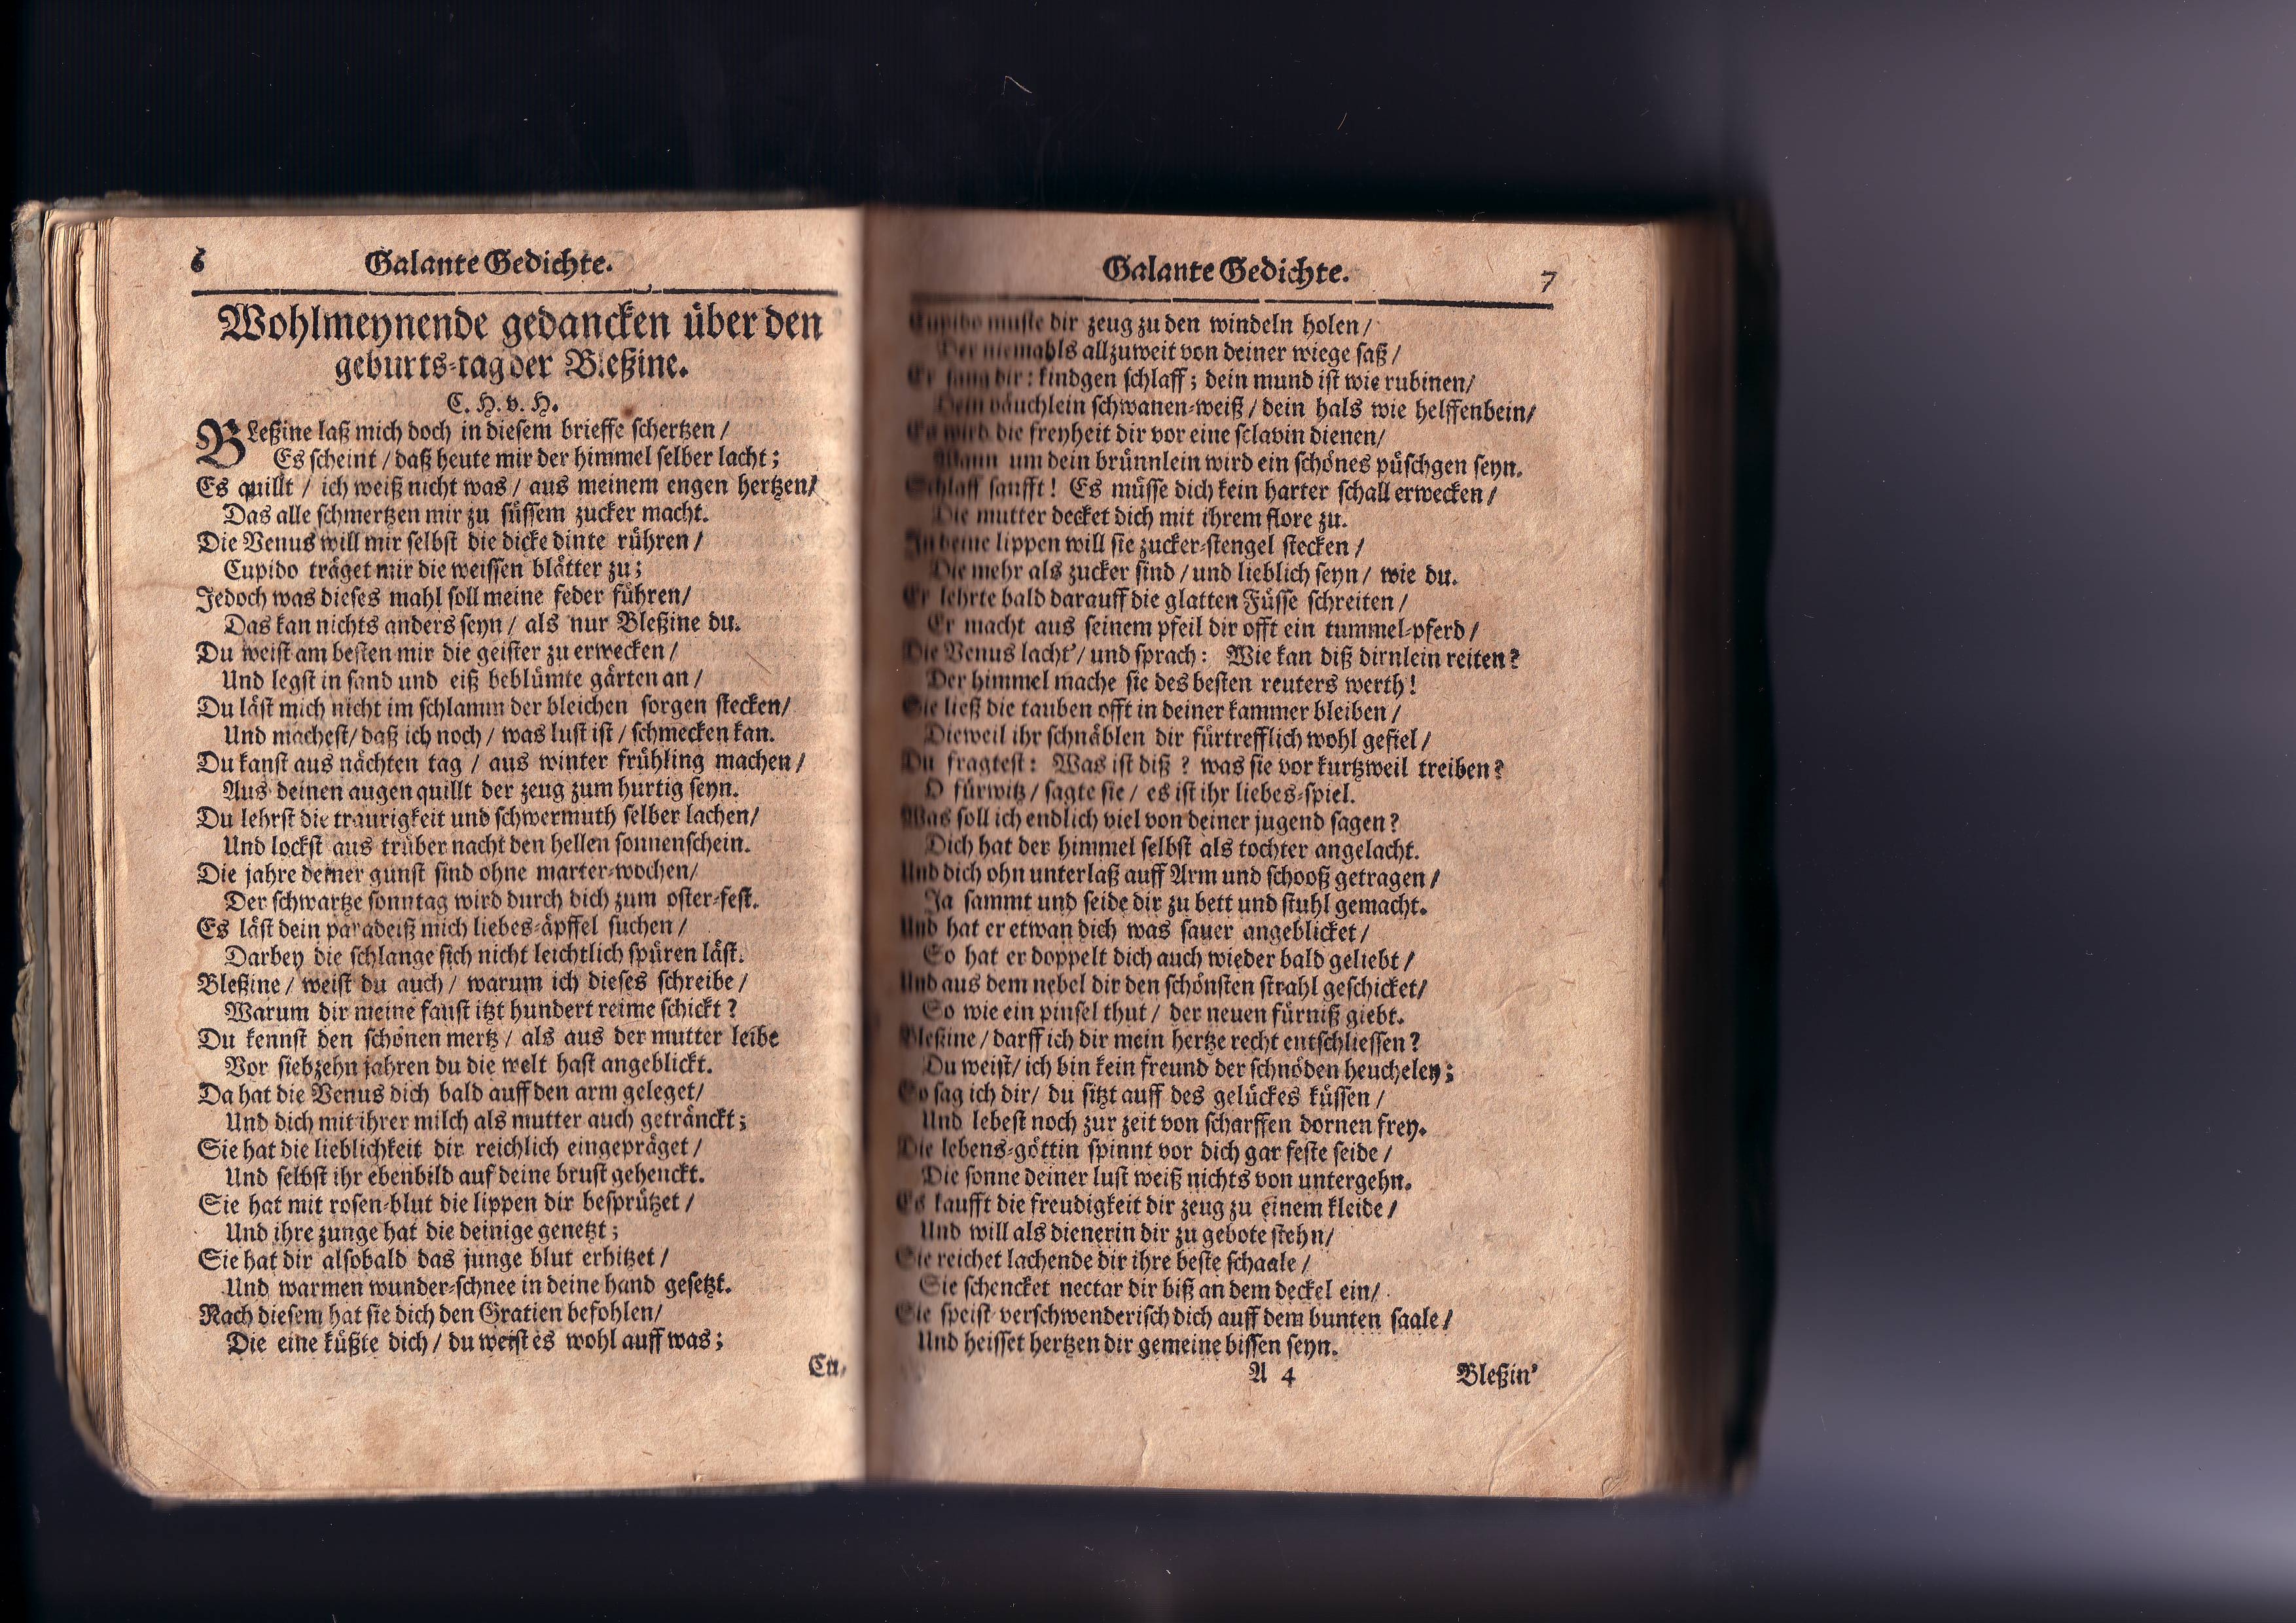 6 Galante Gedichte.
Wohlmeynende gedancken über den
geburts-tag der Bleßine.
C. H. v. H.
BLeßine laß mich doch in diesem brieffe schertzen /
Es scheint / daß heute mir der himmel selber lacht;
Es quillt / ich weiß nicht was / aus meinem engen hertzen /
Das alle schmertzen mir zu süssem zucker macht.
Die Venus will mir selbst die dicke dinte rühren /
Cupido träget mir die weissen blätter zu;
Jedoch was dieses mahl soll meine feder führen /
Das kan nichts anders seyn / als nur Bleßine du.
Du weist am besten mir die geister zu erwecken /
Und legst in sand und eiß beblümte gärten an /
Du läst mich nicht im schlamm der bleichen sorgen stecken /
Und machest / daß ich noch / was lust ist / schmecken kan.
Du kanst aus nächten tag / aus winter frühling machen /
Aus deinen augen quillt der zeug zum hurtig seyn.
Du lehrst die traurigkeit und schwermuth selber lachen /
Und lockst aus trüber nacht den hellen sonnenschein.
Die jahre deiner gunst sind ohne marter-wochen /
Der schwartze sonntag wird durch dich zum oster-fest.
Es läst dein paradeiß mich liebes-äpffel suchen /
Darbey die schlange sich nicht leichtlich spüren läst.
Bleßine / weist du auch / warum ich dieses schreibe /
Warum dir meine faust itzt hundert reime schickt ?
Du kennst den schönen mertz / als aus der mutter leibe
Vor siebzehn jahren du die welt hast angeblickt.
Da hat die Venus dich bald auff den arm geleget /
Und dich mit ihrer milch als mutter auch getränckt;
Sie hat die lieblichkeit dir reichlich eingepräget /
Und selbst ihr ebenbild auf deine brust gehenckt.
Sie hat mit rosen-blut die lippen dir besprützet /
Und ihre zunge hat die deinige genetzt;
Sie hat dir alsobald das junge blut erhitzet /
Und warmen wunder-schnee in deine hand gesetzt.
Nach diesem hat sie dich den Gratien befohlen /
Die eine küßte dich / du weist es wohl auff was;
Cu-
Galante Gedichte. 7
Cupido muste dir zeug zu den windeln holen /
Der niemahls allzuweit von deiner wiege saß /
Er sang dir: kindgen schlaff; dein mund ist wie rubinen /
Dein bäuchlein schwanen-weiß / dein hals wie helffenbein /
Es wird die freyheit dir vor eine sclavin dienen /
Wann um dein brünnlein wird ein schönes püschgen seyn.
Schlaff sanfft! Es müsse dich kein harter schall erwecken /
Die mutter decket dich mit ihrem flore zu.
In deine lippen will sie zucker-stengel stecken /
Die mehr als zucker sind / und lieblich seyn / wie du.
Er lehrte bald darauff die glatten Füsse schreiten /
Er macht aus seinem pfeil dir offt ein tummel-pferd /
Die Venus lacht' / und sprach: Wie kan diß dirnlein reiten?
Der himmel mache sie des besten reuters werth!
Sie ließ die tauben offt in deiner kammer bleiben /
Dieweil ihr schnäblen dir fürtrefflich wohl gefiel /
Du fragtest: Was ist diß ? was sie vor kurtzweil treiben?
O fürwitz / sagte sie / es ist ihr liebes-spiel.
Was soll ich endlich viel von deiner jugend sagen?
Dich hat der himmel selbst als tochter angelacht.
Und dich ohn unterlaß auff Arm und schooß getragen /
Ja sammt und seide dir zu bett und stuhl gemacht.
Und hat er etwan dich was sauer angeblicket /
So hat er doppelt dich auch wieder bald geliebt /
Und aus dem nebel dir den schönsten strahl geschicket /
So wie ein pinsel thut / der neuen fürniß giebt.
Bleßine / darff ich dir mein hertze recht entschliessen?
Du weist / ich bin kein freund der schnöden heucheley;
So sag ich dir / du sitzt auff des gelückes küssen /
Und lebest noch zur zeit von scharffen dornen frey.
Die lebens-göttin spinnt vor dich gar feste seide /
Die sonne deiner lust weiß nichts von untergehn.
Es kaufft die freudigkeit dir zeug zu einem kleide /
Und will als dienerin dir zu gebote stehn /
Sie reichet lachende dir ihre beste schaale /
Sie schencket nectar dir biß an dem deckel ein /
Sie speist verschwenderisch dich auff dem bunten saale /
Und heisset hertzen dir gemeine bissen seyn.
A 4 Bleßin'